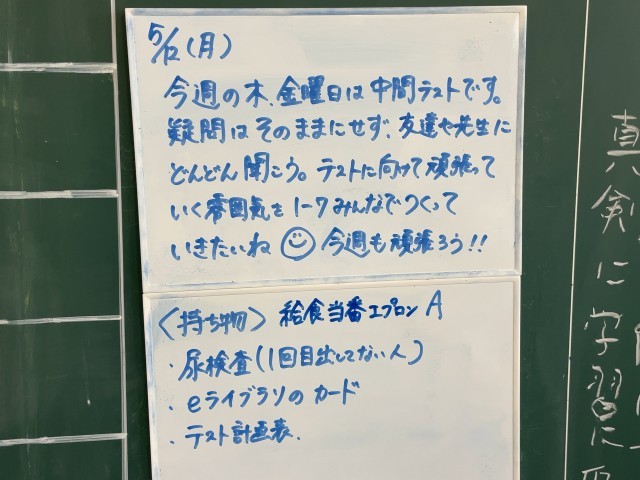 5/12(月)
今週の木、金曜日は中間テストです。
疑問はそのままにせず、友達や先生に
どんどん聞こう。テストに向けて頑張って
いく雰囲気を1-7みんなでつくって
いきたいね 今週も頑張ろう!!
〈持ち物〉 給食当番エプロン A
・尿検査(1回目出してない人)
・eライブラリのカード
・テスト計画表.
真剣に学習に